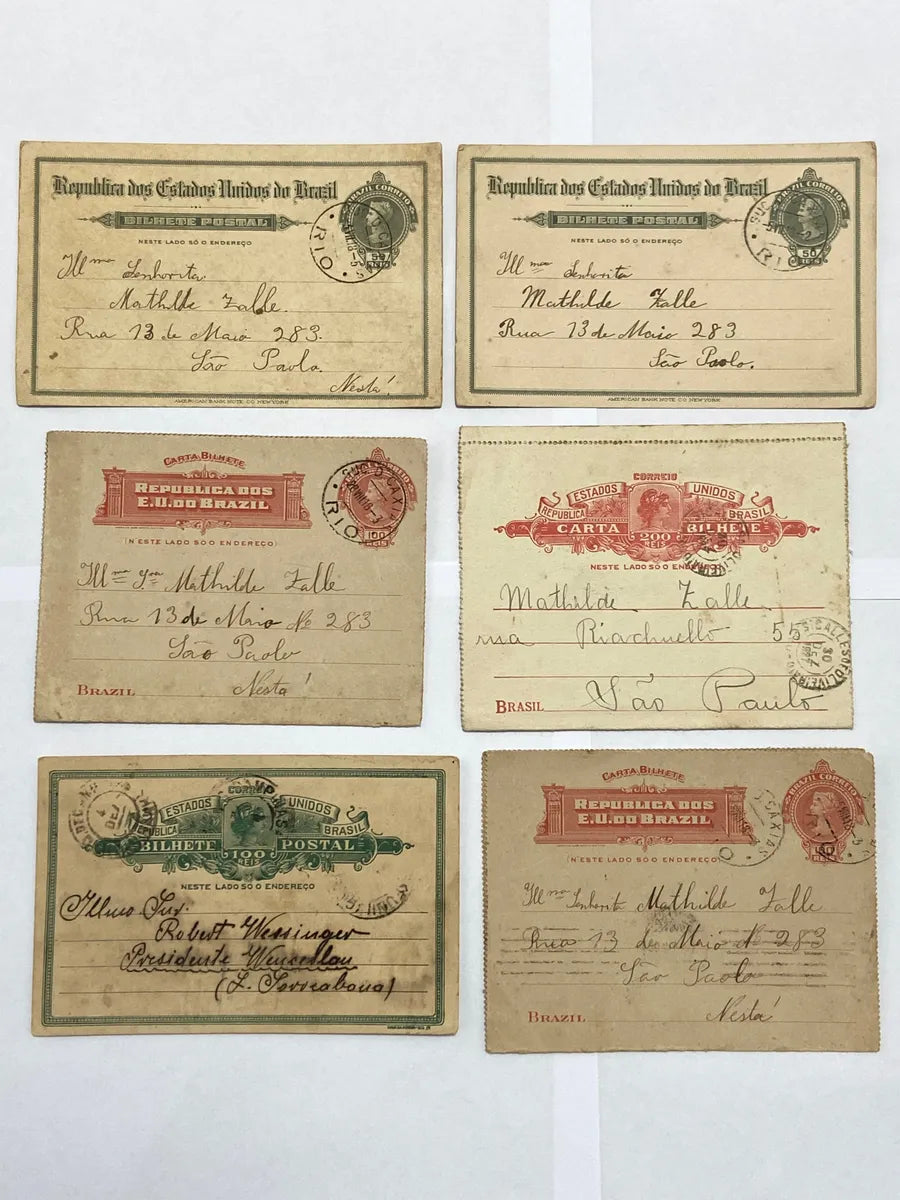 Republica dos Estados Unidos do Brazil
BRAZIL CORREIO
BILHETE POSTAL
NESTE LADO SÓ O ENDEREÇO
50
REIS
RIO
Illma Senhorita
Mathilde Zalle
Rua 13 de Maio 283.
São Paolo.
Nesta!
AMERICAN BANK NOTE CO NEW YORK
Republica dos Estados Unidos do Brazil
BRAZIL CORREIO
BILHETE POSTAL
NESTE LADO SÓ O ENDEREÇO
50
REIS
SUC
RIO
Illma Senhorita
Mathilde Zalle
Rua 13 de Maio 283
São Paolo.
AMERICAN BANK NOTE CO NEW YORK
CARTA BILHETE
REPUBLICA DOS
E.U. DO BRAZIL
(NESTE LADO SÓ O ENDEREÇO)
100
REIS
SUC. D. CAXIAS
RIO
Illma Sra Mathilde Zalle
Rua 13 de Maio No 283
São Paolo
BRAZIL Nesta!
CORREIO
ESTADOS UNIDOS
REPUBLICA BRASIL
CARTA 200 BILHETE
REIS
NESTE LADO SÓ O ENDEREÇO
Mathilde Zalle
rua Riachuello 55
30
DEZ
BRASIL São Paulo
CORREIO
ESTADOS UNIDOS
REPUBLICA BRASIL
BILHETE 100 POSTAL
REIS
CAMPINAS
NESTE LADO SÓ O ENDEREÇO
Illmo Snr.
Robert Wessinger
Presidente Wenceslau
(L. Sorocabana)
CARTA BILHETE
REPUBLICA DOS
E.U. DO BRAZIL
BRAZIL CORREIO
(NESTE LADO SÓ O ENDEREÇO)
REIS
CAXIAS
Illma Senhorita Mathilde Zalle
Rua 13 de Maio No 283
São Paolo
BRAZIL Nesta!